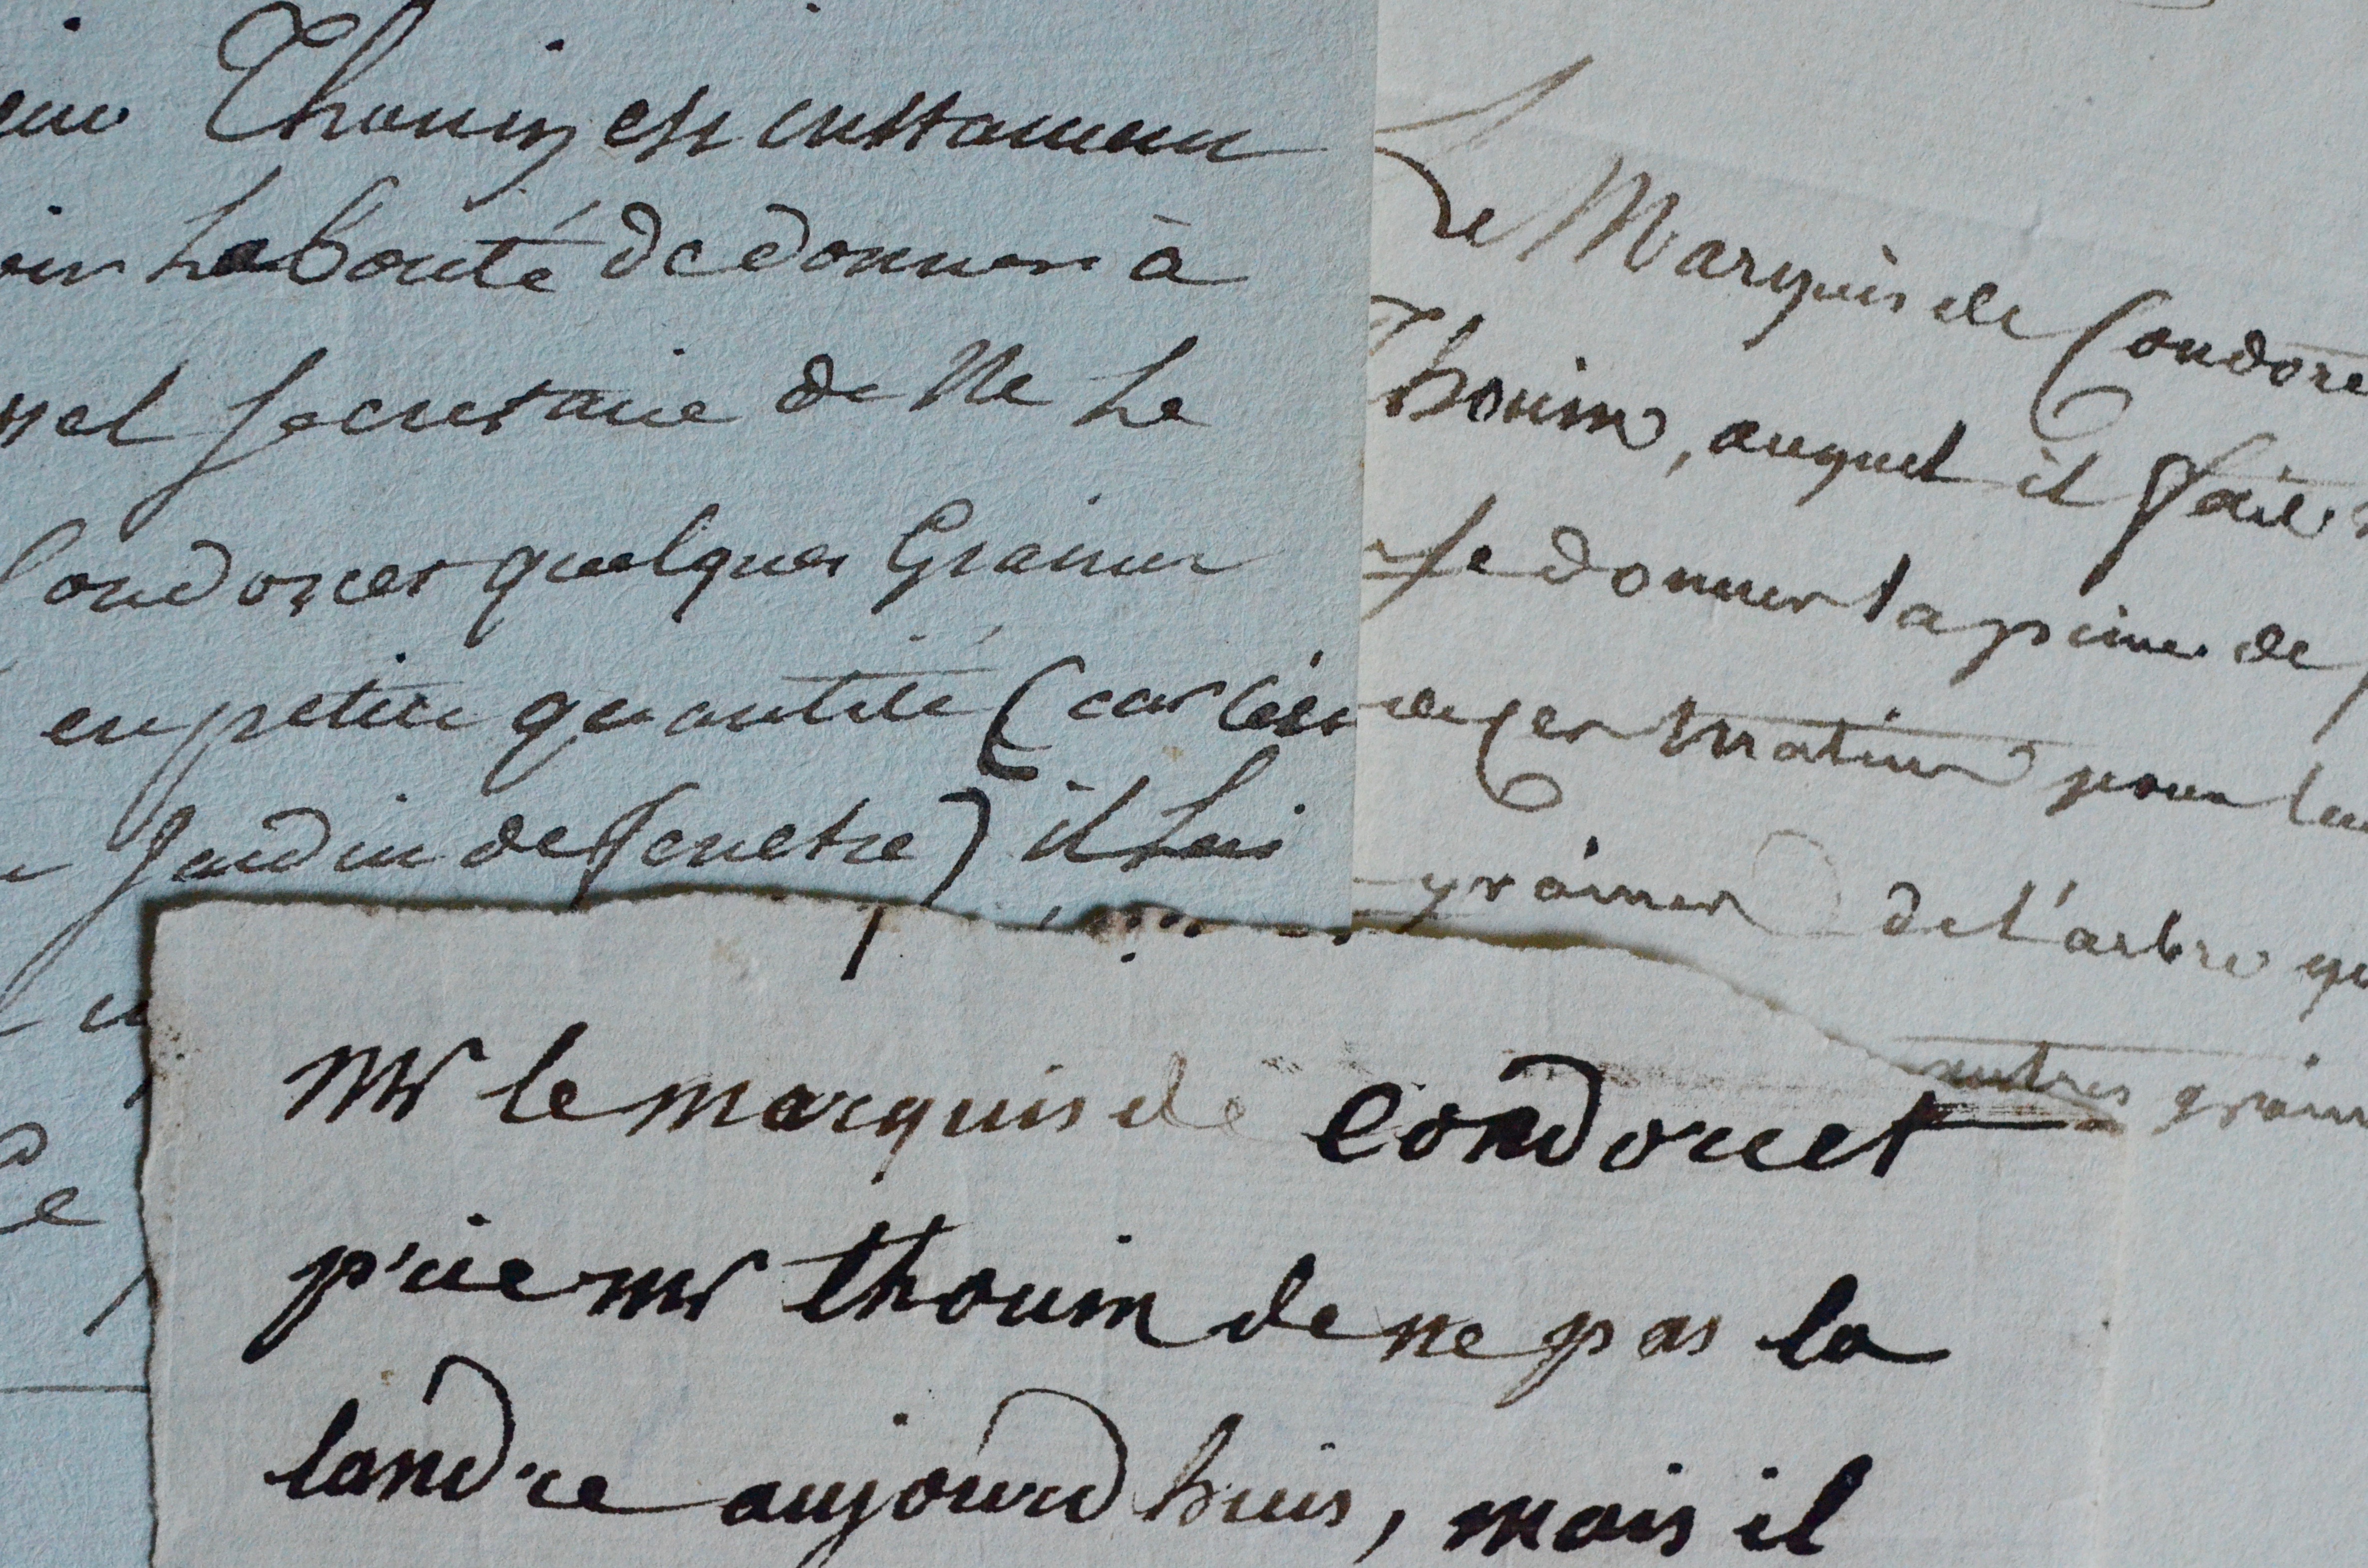 Thouin est instamment
la bonté de donner à
secretaire de Mr Le
Condorcet quelques Graines
en petite quantité (car c'est
Jardin de fenetre) il lui
Le Marquis de Condorce
Thouin, auquel il fait
se donner la peine de
de ces matins pour
graines de l'arbre qu
autres graines
Mr le marquis de Condorcet
prie Mr thouin de ne pas la
tandre aujourd huis, mais il